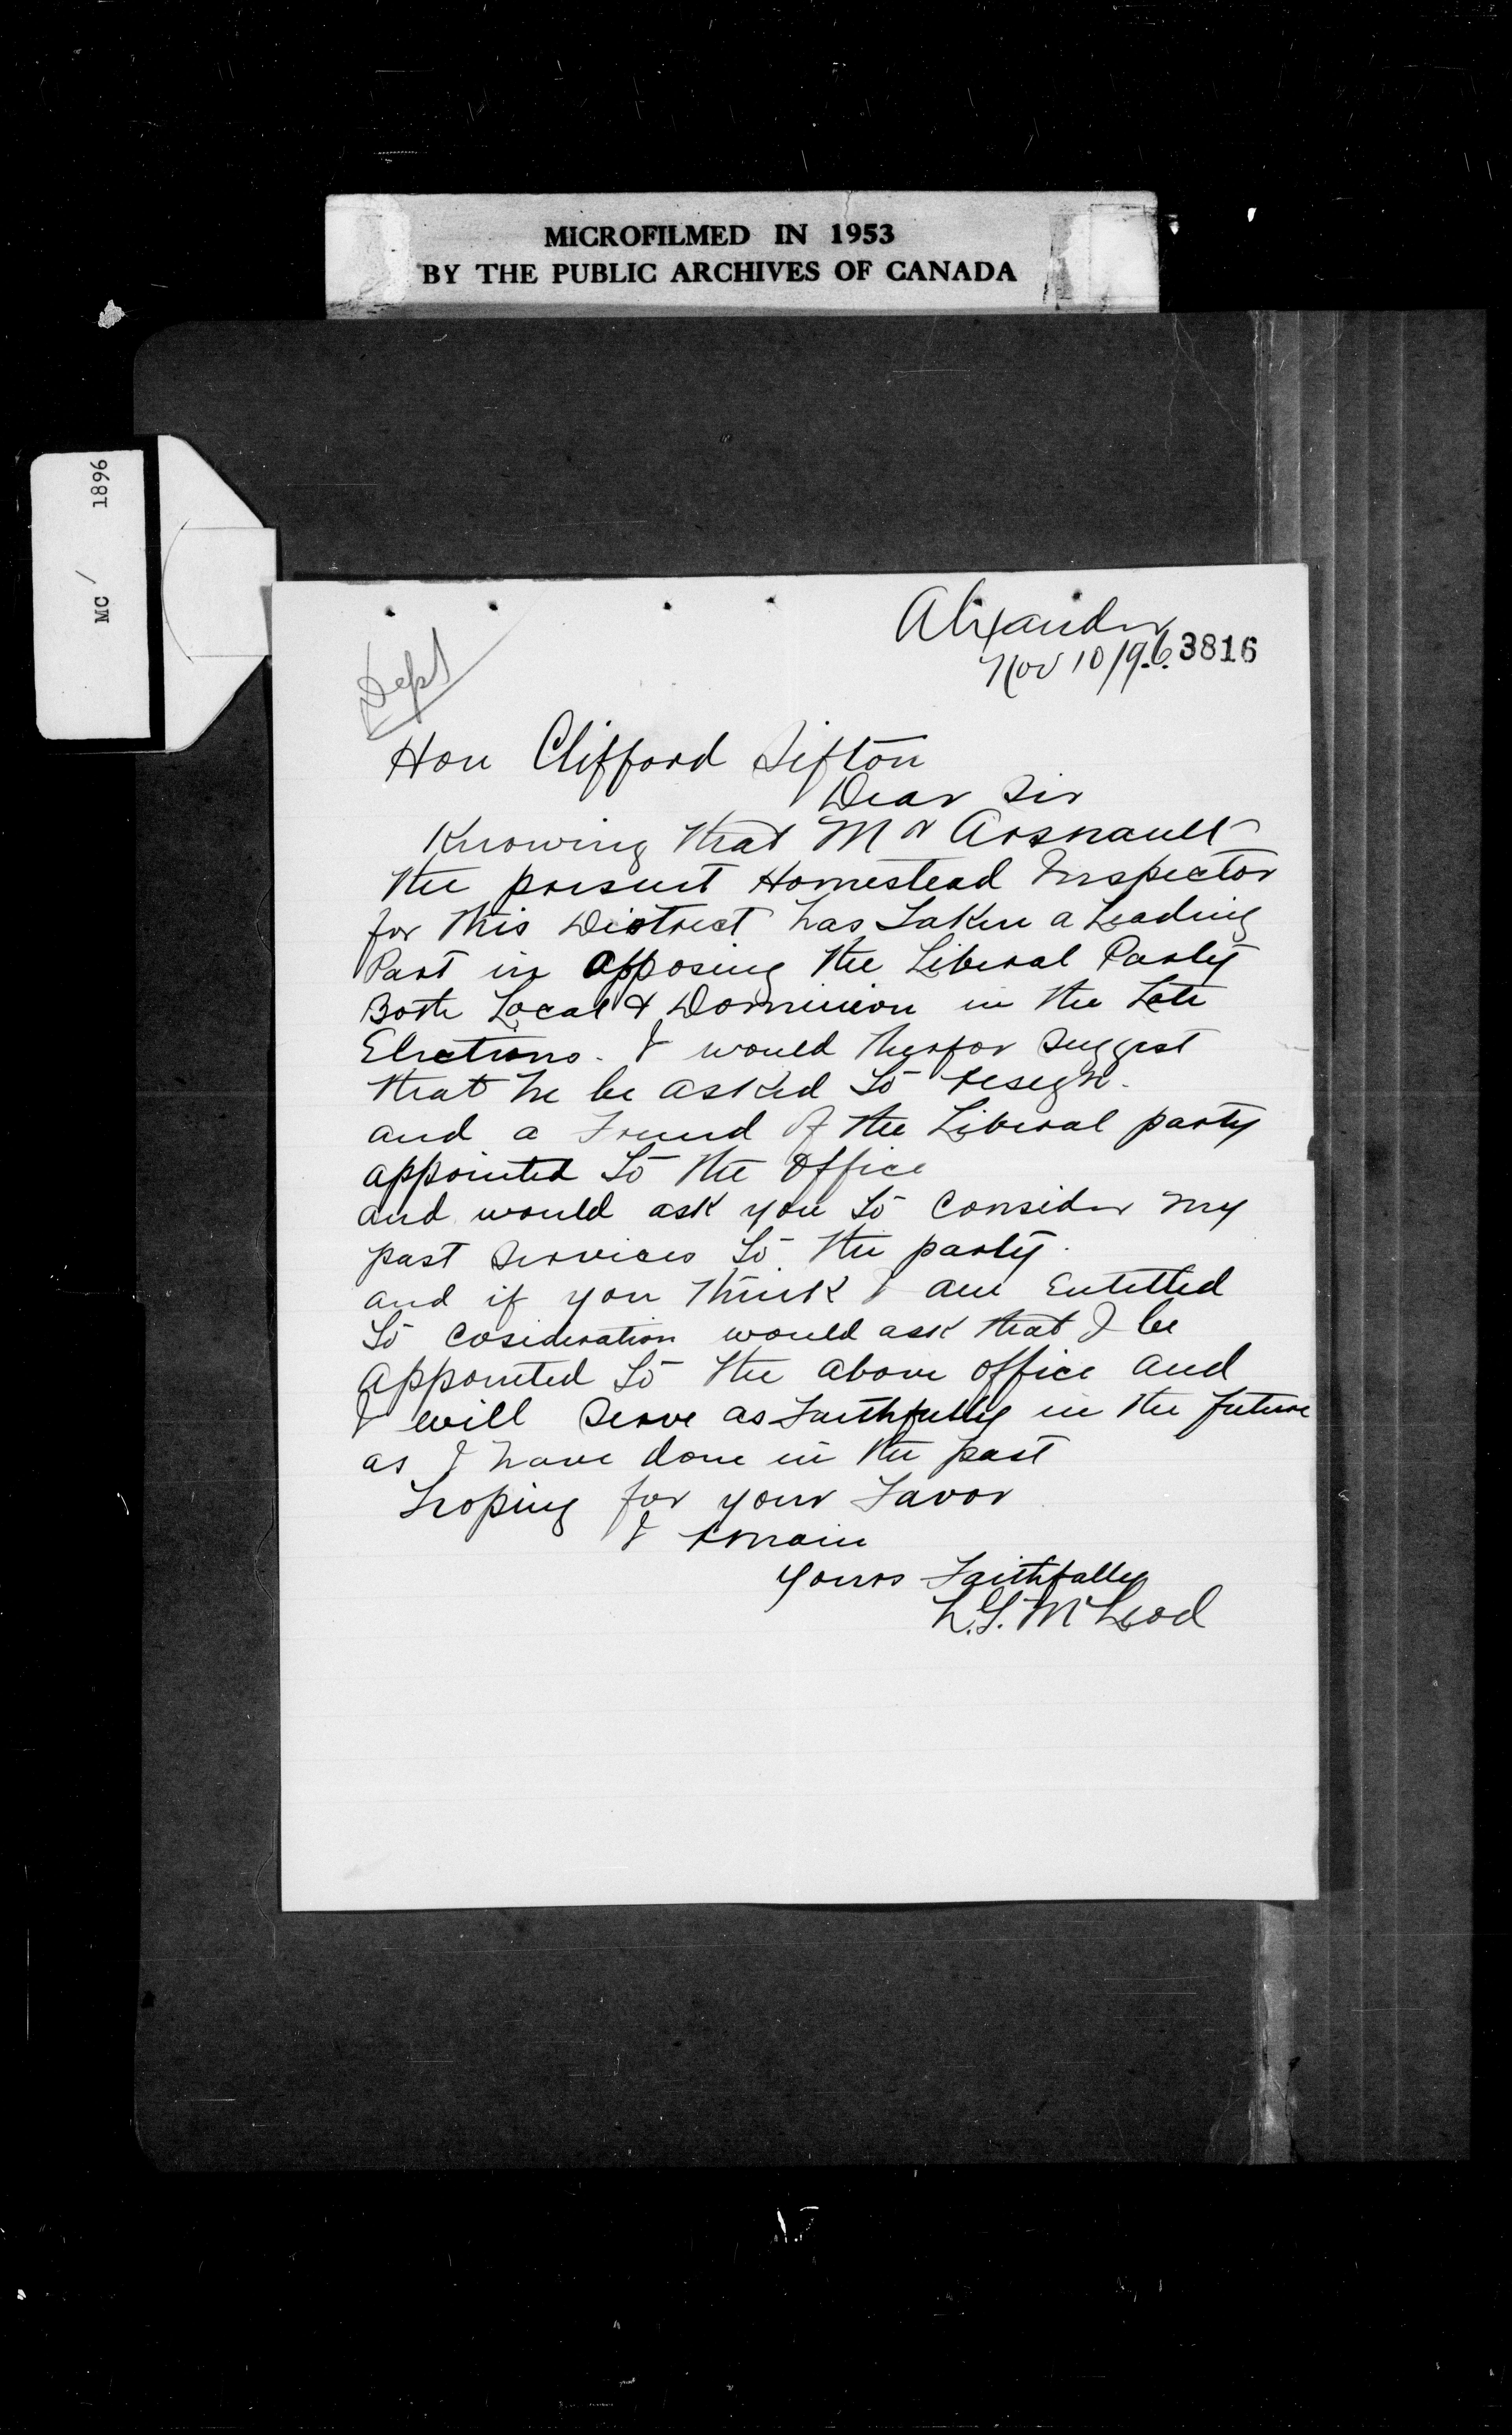 MICROFILMED IN 1953
BY THE PUBLIC ARCHIVES OF CANADA
MC / 1896
Alexander
Nov 10/96. 3816
Dept
Hon Clifford Sifton
Dear Sir
Knowing that Mr Arsnault
the presint Homestead Inspector
for this District has taken a Leading
Part in opposing the Liberal Party
Both Local & Dominion in the Late
Elections. I would therfor suggest
that he be asked to resign.
and a Friend of the Liberal party
appointed to the office
and would ask you to consider my
past services to the party.
and if you think I am Entitled
to cosideration would ask that I be
appointed to the above office and
I will serve as Faithfully in the future
as I have done in the past
hoping for your Favor
I remain
Yours Faithfully
McLeod